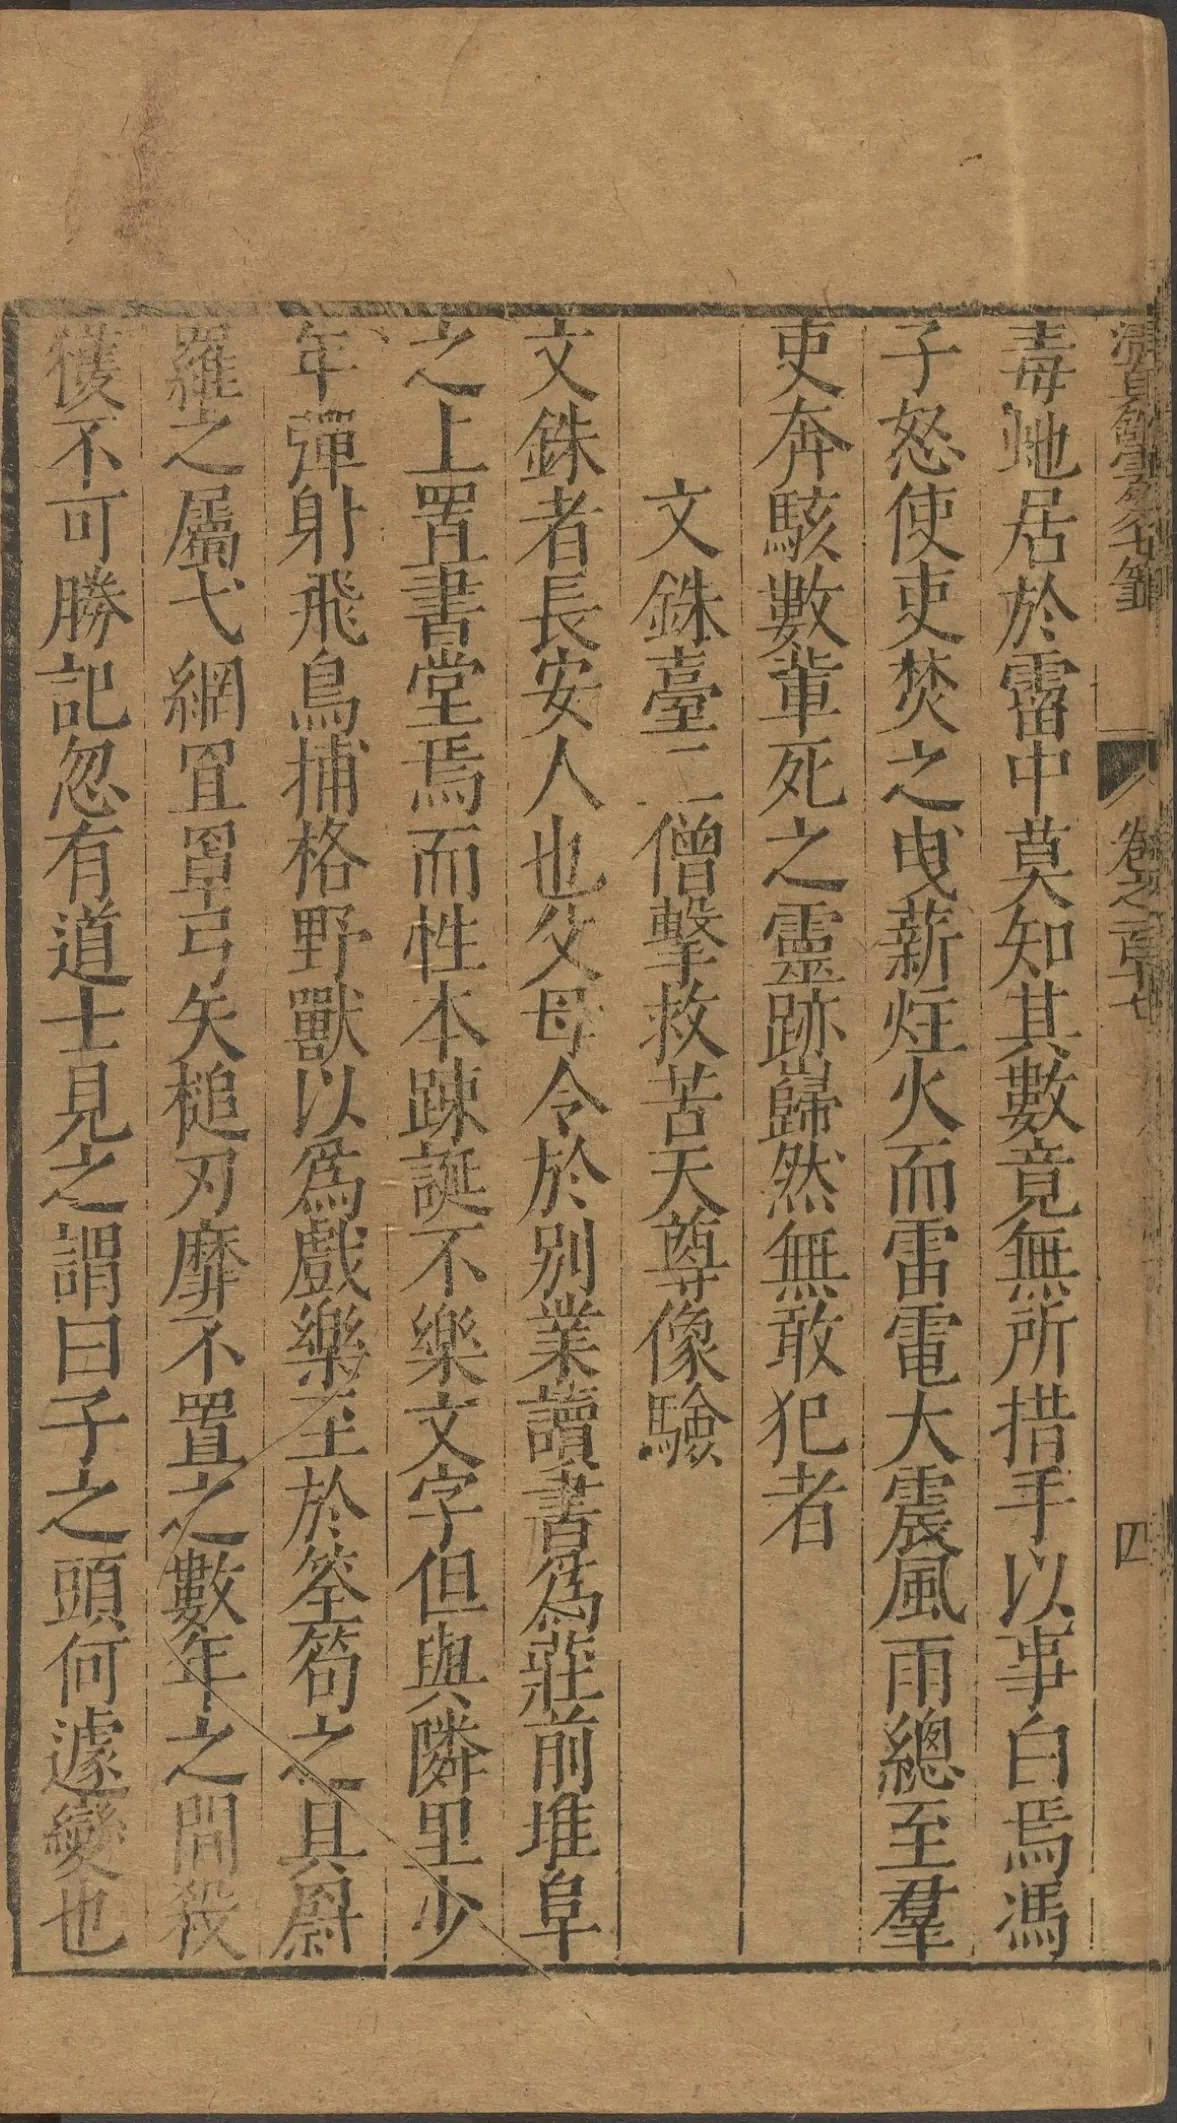 清真館雲笈七籤 卷之一百十七 四
毒虵居於霤中莫知其數竟無所措手以事白焉馮
子怒使吏焚之曵薪炷火而雷電大震風雨總至羣
吏奔駭數輩死之靈跡巋然無敢犯者
文銖臺二僧擊救苦天尊像驗
文銖者長安人也父母令於別業讀書為莊前堆阜
之上置書堂焉而性本踈誕不樂文字但與隣里少
年彈射飛鳥捕格野獸以為戲樂至於筌笱之具罻
羅之屬弋網罝罩弓矢槌刃靡不置之數年之間殺
獲不可勝記忽有道士見之謂曰子之頭何遽變也